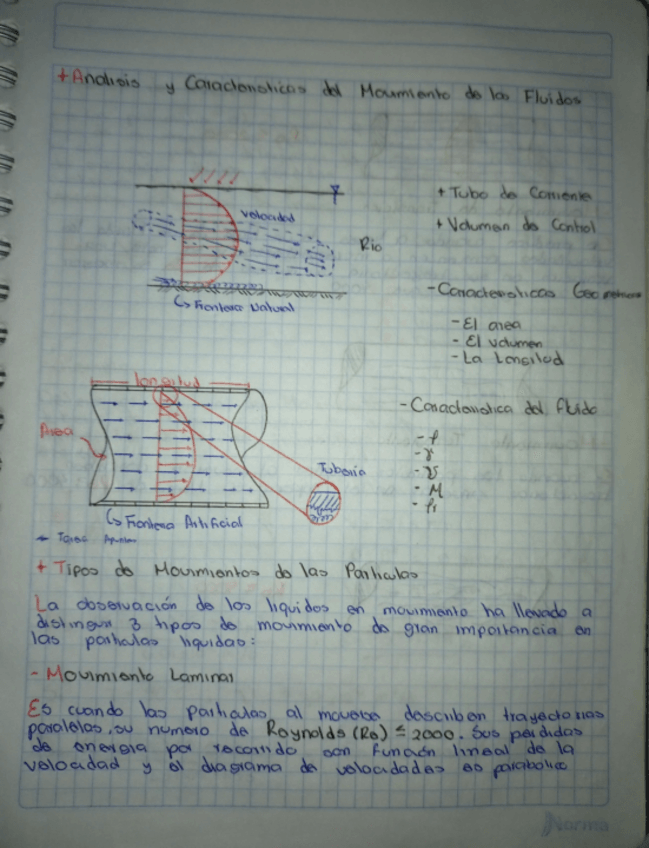 + Analisis y Caracteristicas del Movimiento de los Fluidos
velocidad
Rio
↳ Frontera Natural
+ Tubo de Corriente
+ Volumen de Control
- Caracteristicas Geo
- El area
- El volumen
- La Longitud
longitud
Area
Tuberia
↳ Frontera Artificial
- Caracteristica del fluido
- ρ
- γ
- υ
- M
+ Tipos de Movimientos de las Particulas
La observación de los liquidos en movimiento ha llevado a
distinguir 3 tipos de movimiento de gran importancia en
las particulas liquidas:
- Movimiento Laminar
Es cuando las particulas al moverse describen trayectorias
paralelas, su numero de Reynolds (Re) ≤ 2000. Sus perdidas
de energia por recorrido son función lineal de la
velocidad y el diagrama de velocidades es parabolico
Norma